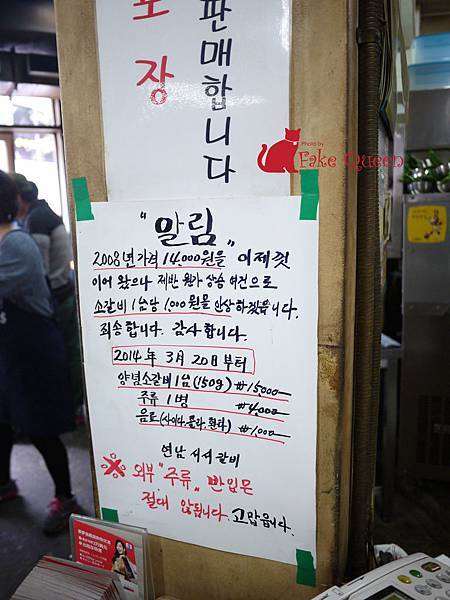 포장
판매합니다
Photo by
Fake Queen
"알림"
2008년 가격 14,000원을 이제껏
이어 왔으나 제반 원가 상승 여건으로
소갈비 1대당 1,000원을 인상하겠읍니다.
죄송합니다. 감사합니다.
2014년 3월 20일부터
양념소갈비 1대 (150g) ₩15,000
주류 1병 ₩4,000
음료 (사이다.콜라.환타) ₩1,000
연남 서서갈비
※ 외부 "주류" 반입은
절대 않됩니다. 고맙읍니다.